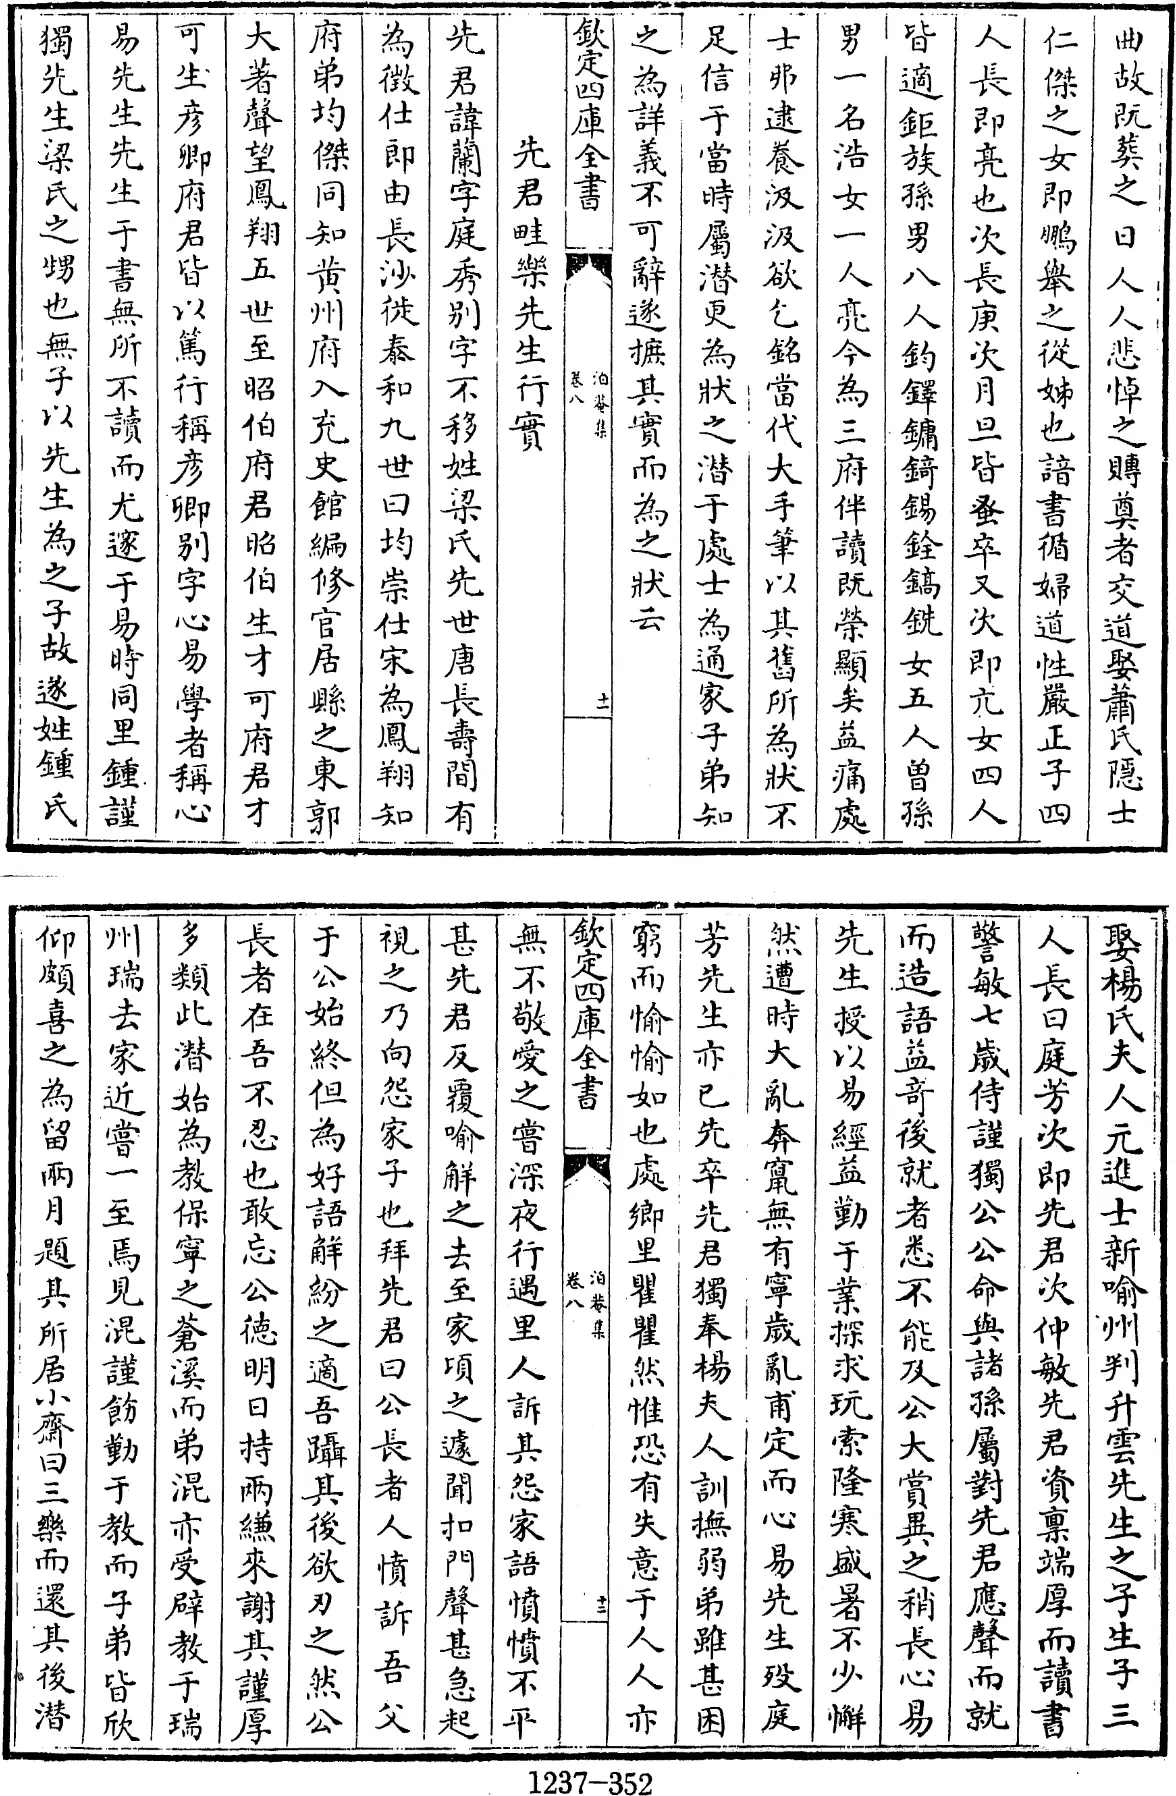 曲故既葬之日人人悲悼之賻奠者交道娶蕭氏隱士
仁傑之女即鵬舉之從姊也諳書循婦道性嚴正子四
人長即亮也次長庚次月旦皆蚤卒又次即亢女四人
皆適鉅族孫男八人鈞鐸鏞錡錫銓鎬銑女五人曽孫
男一名浩女一人亮今為三府伴讀既榮顯矣益痛處
士弗逮養汲汲欲乞銘當代大手筆以其舊所為狀不
足信于當時屬潜更為狀之潜于處士為通家子弟知
之為詳義不可辭遂摭其實而為之狀云
欽定四庫全書
泊菴集
卷八
十一
先君畦樂先生行實
先君諱蘭字庭秀别字不移姓梁氏先世唐長壽間有
為徴仕郎由長沙徙泰和九世曰均崇仕宋為鳳翔知
府弟均傑同知黄州府入充史館編修官居縣之東郭
大著聲望鳳翔五世至昭伯府君昭伯生才可府君才
可生彦卿府君皆以篤行稱彦卿别字心易學者稱心
易先生先生于書無所不讀而尤邃于易時同里鍾謹
獨先生梁氏之甥也無子以先生為之子故遂姓鍾氏
娶楊氏夫人元進士新喻州判升雲先生之子生子三
人長曰庭芳次即先君次仲敏先君資稟端厚而讀書
警敏七歲侍謹獨公公命與諸孫屬對先君應聲而就
而造語益竒後就者悉不能及公大賞異之稍長心易
先生授以易經益勤于業探求玩索隆寒盛暑不少懈
然遭時大亂奔竄無有寧歲亂甫定而心易先生殁庭
芳先生亦已先卒先君獨奉楊夫人訓撫弱弟雖甚困
窮而愉愉如也處鄉里瞿瞿然惟恐有失意于人人亦
欽定四庫全書
泊菴集
卷八
十二
無不敬愛之嘗深夜行遇里人訴其怨家語憤憤不平
甚先君反覆喻解之去至家頃之遽聞扣門聲甚急起
視之乃向怨家子也拜先君曰公長者人憤訴吾父
于公始終但為好語解紛之適吾躡其後欲刃之然公
長者在吾不忍也敢忘公德明日持兩縑來謝其謹厚
多類此潜始為教保寧之蒼溪而弟混亦受辟教于瑞
州瑞去家近嘗一至焉見混謹飭勤于教而子弟皆欣
仰頗喜之為留兩月題其所居小齋曰三樂而還其後潜
1237-352